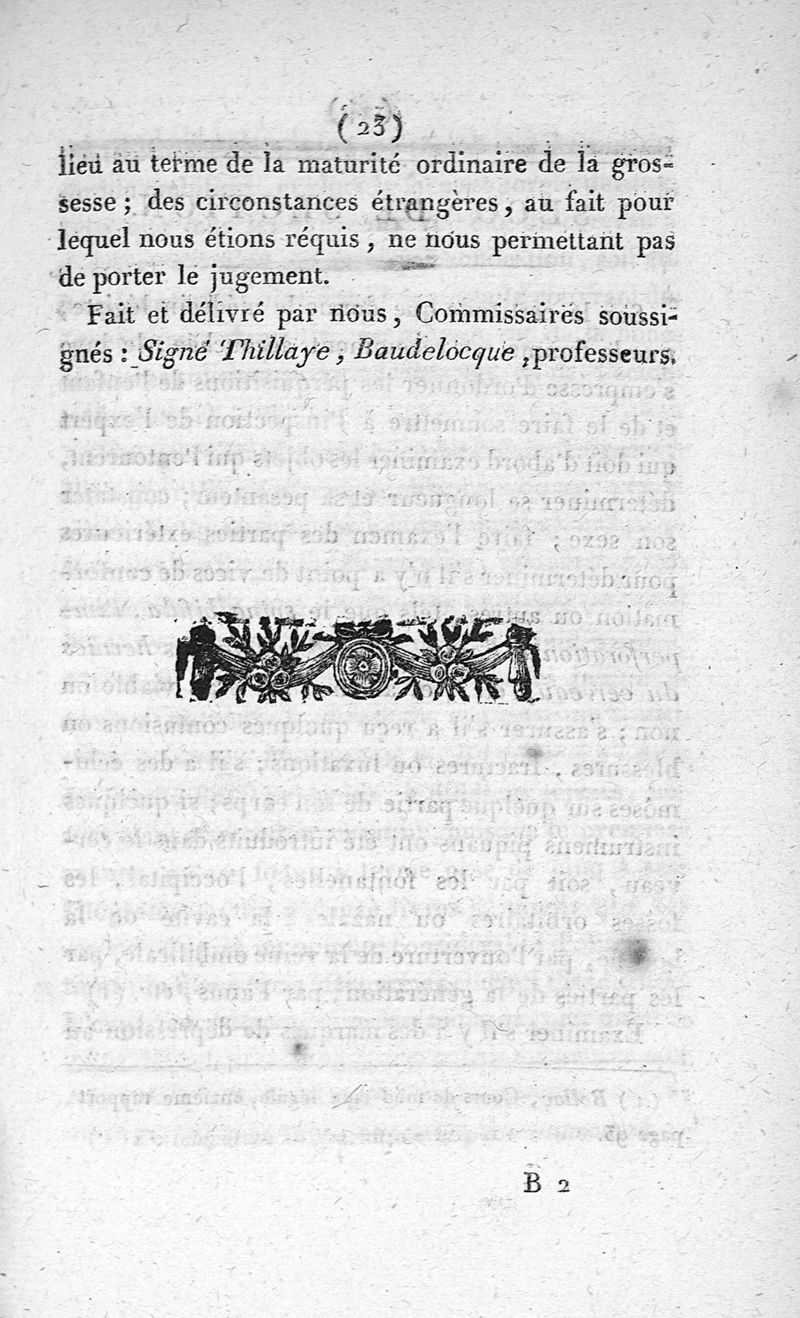 (23)
lieu au terme de la maturité ordinaire de la gros-
sesse ; des circonstances étrangères, au fait pour
lequel nous étions réquis, ne nous permettant pas
de porter le jugement.
Fait et délivré par nous, Commissaires soussi-
gnés : Signé Thillaye, Baudelocque, professeurs.
B 2